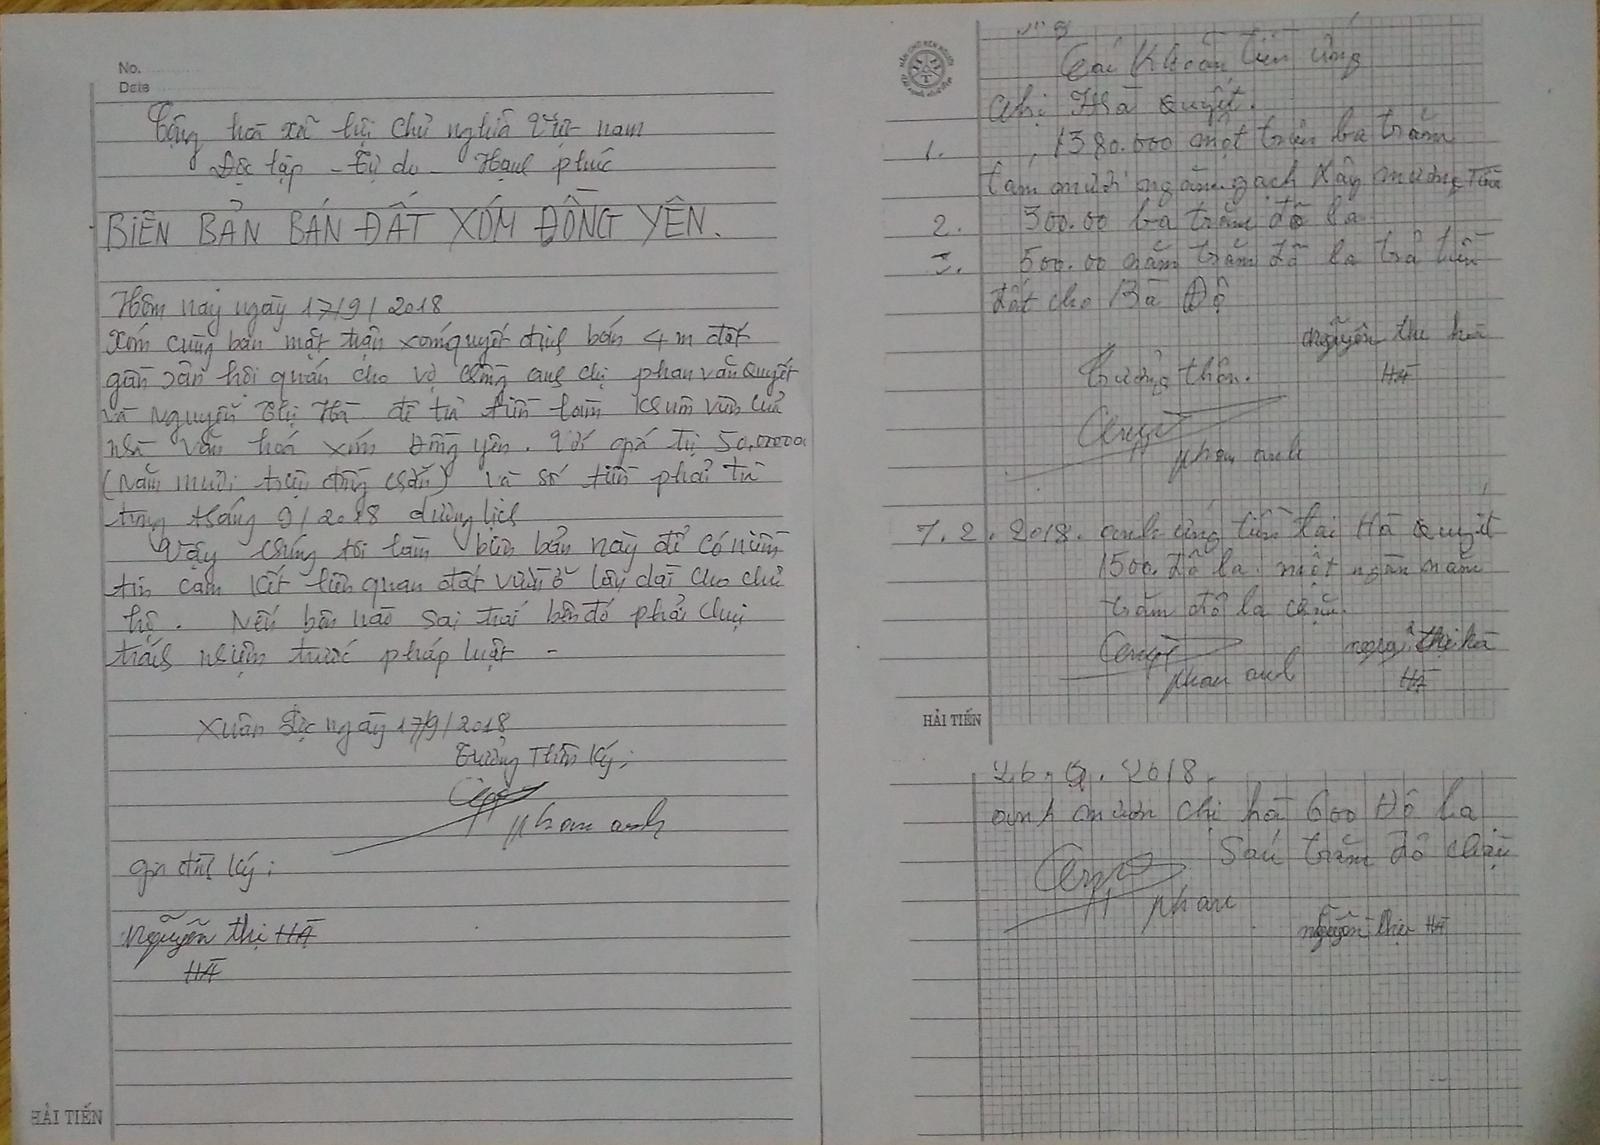 No.
Date
Cộng hoà xã hội chủ nghĩa Việt nam
Độc lập - Tự do - Hạnh phúc
BIÊN BẢN BÁN ĐẤT XÓM ĐỒNG YÊN.
Hôm nay ngày 17/9/2018
Xóm cùng ban mặt trận xóm quyết định bán 4 m đất
gần sân hội quán cho vợ chồng anh chị phan văn Quyết
và Nguyễn Thị Hà để trả tiền làm khuôn viên của
nhà văn hoá xóm Đồng yên. Với giá trị 50.000000
(Năm mươi triệu đồng chẵn) và số tiền phải trả
trong tháng 9/2018 dương lịch
Vậy chúng tôi làm biên bản này để có niềm
tin cam kết liên quan đất vườn ở lâu dài cho chủ
hộ. Nếu bên nào sai trái bên đó phải chịu
trách nhiệm trước pháp luật -
Xuân Lộc ngày 17/9/2018
Trưởng Thôn ký;
phan anh
gia đình ký;
Nguyễn thị HÀ
HÀ
HẢI TIẾN
Cái khoản tiền ứng
chị Hà Quyết.
1. 1380.000 một triệu ba trăm
tám mươi ngàn gạch xây mương
2. 300.00 ba trăm đô la
3. 500.00 năm trăm đô la trả tiền
đất cho Bà Độ
nguyễn thị hà
Trưởng thôn. HÀ
phan anh
7.2.2018. anh ứng tiền tại Hà Quyết
1500. đô la một ngàn năm
trăm đô la chẵn.
thị hà
phan anh HÀ
HẢI TIẾN
26.9.2018.
anh mượn chị hà 600 Đô la
Sáu trăm đô chẵn
phan
nguyễn thị HÀ